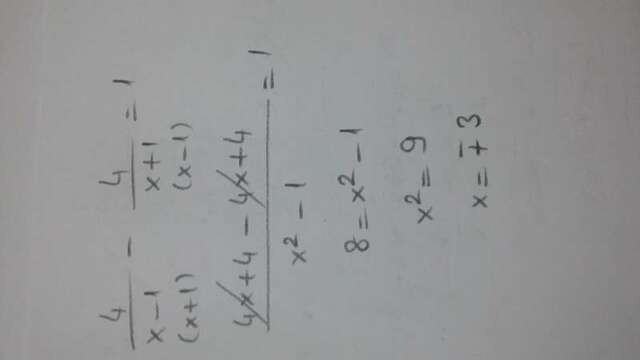 4/(x-1) - 4/(x+1) = 1
(x+1) (x-1)
(4x+4-4x+4)/(x²-1) = 1
8 = x² - 1
x² = 9
x = ∓3